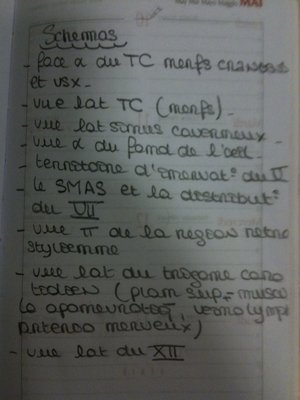 MAI
Schemas
- face α du TC nerfs craniens
et vsx -
- vue lat TC (nerfs) -
- vue lat sinus caverneux -
- vue α du fond de l'oeil -
- territoire d'innervat° du V
- le SMAS et la distribut°
du VII
- vue π de la region retro
stylienne
- vue lat du trigone caro
tidien (plan sup - musculo
aponevrotiq, veino lymph
arterio nerveux)
- vue lat du XII